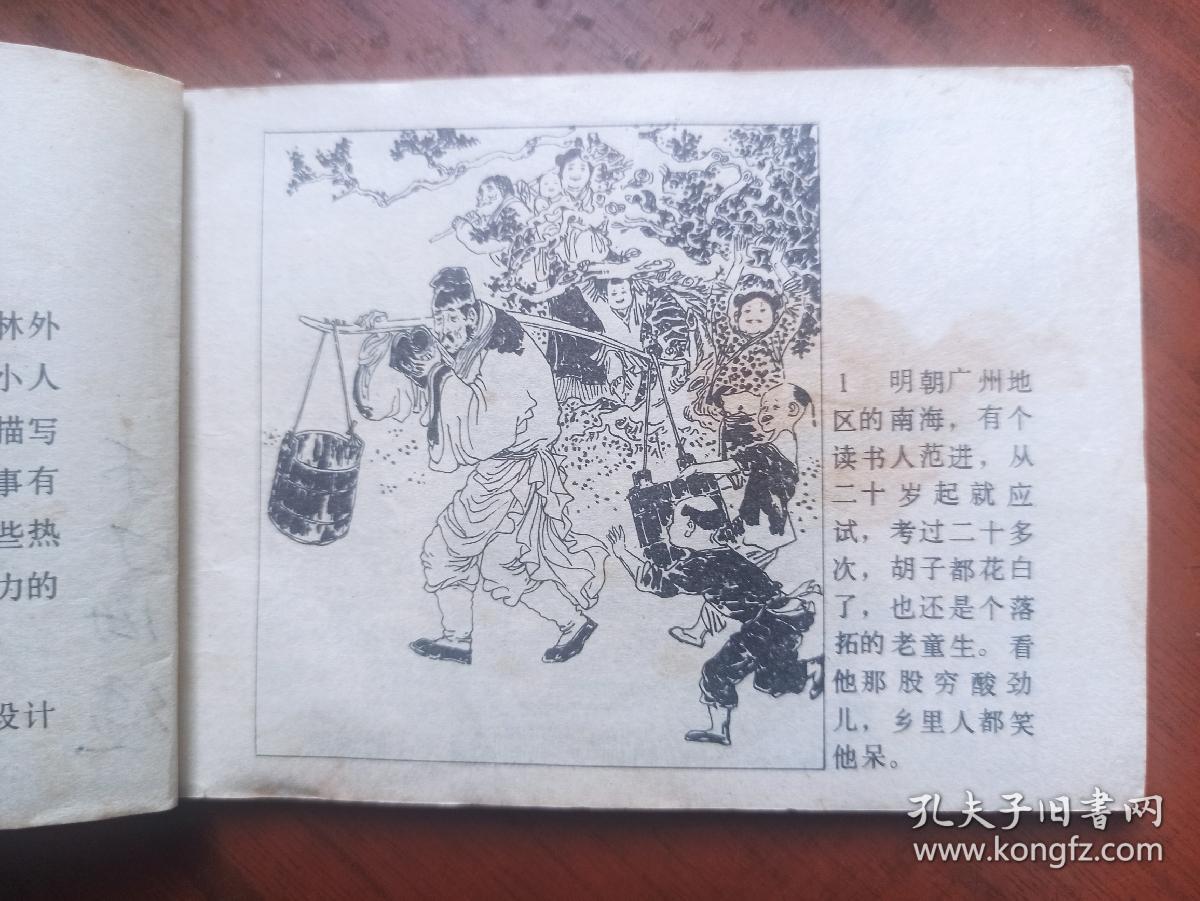 林外
小人
描写
事有
些热
力的
设计
1 明朝广州地
区的南海，有个
读书人范进，从
二十岁起就应
试，考过二十多
次，胡子都花白
了，也还是个落
拓的老童生。看
他那股穷酸劲
儿，乡里人都笑
他呆。
孔夫子旧书网
www.kongfz.com